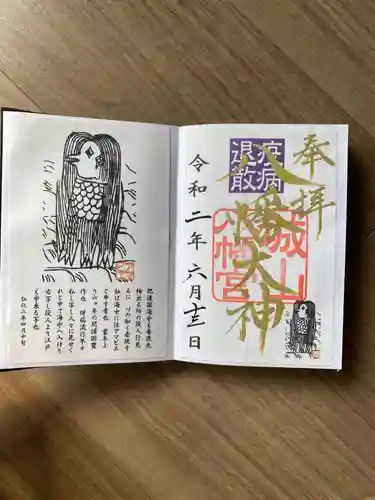 肥後国海中え毎夜光
物出る所の役人行見
るに づの如く者現す
私は海中に住アマビエ
と申す者也 当年より
六ケ年の間諸国豊
作也 併病流行早々
私シ写し人々に見せく
れと申て海中へ入けり
右写し役人より江戸
え申来る写也
弘化三年四月中旬
奉拝
疫病
退散
八幡大神
城山
八幡宮
令和二年六月十三日